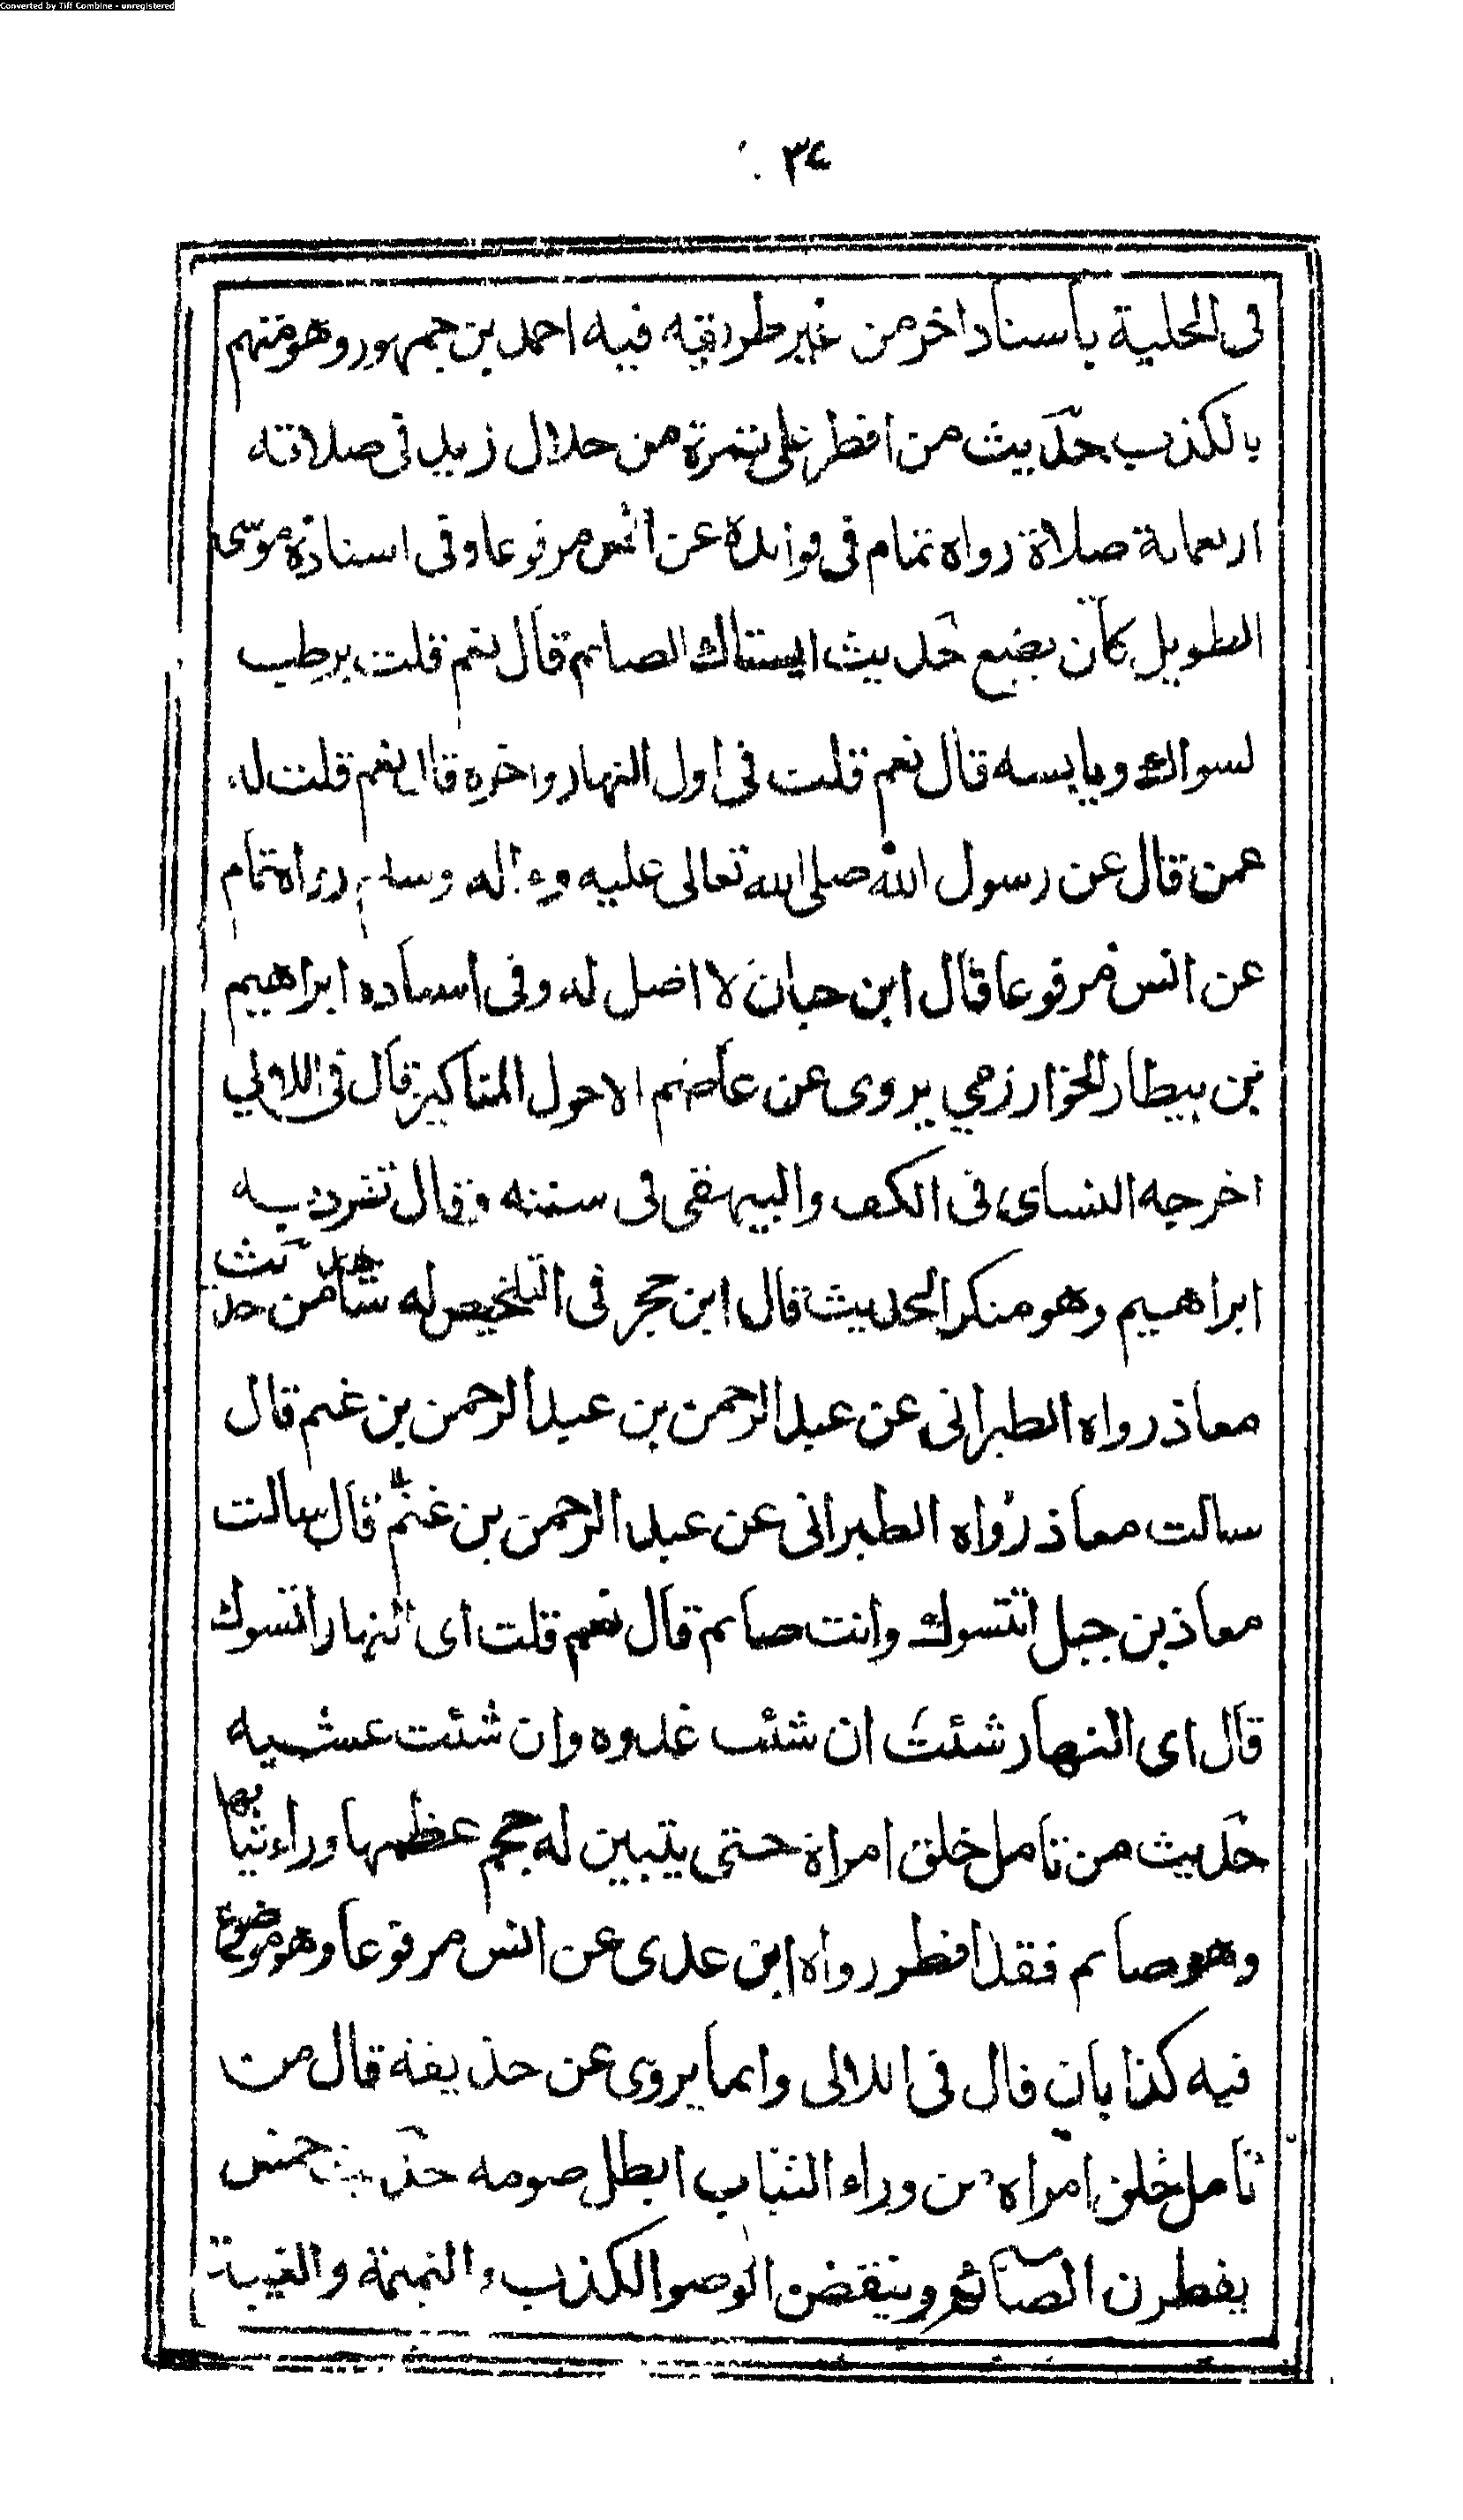 Converted by Tiff Combine - unregistered
٣٤
فى الحلية باسناد اخر من غير طريقه فيه احمد بن جمهور وهو متهم
بالكذب حديث من افطر على تمرة من حلال زيد فى صلاته
اربعماية صلاة رواه تمام فى فوائده عن انس مرفوعا وفى اسناده موسى
الطويل كان يضع حديث ايستاك الصايم قال نعم قلت برطب
لسواك ويابسه قال نعم قلت فى اول النهار واخره قال نعم قلت له
عمن قال عن رسول الله صلى الله تعالى عليه وءاله وسلم رواه تمام
عن انس مرفوعا قال ابن حبان لا اصل له وفى اسناده ابراهيم
بن بيطار الخوارزمي يروى عن عاصم الاحول المناكير قال فى اللالي
اخرجه النساى فى الكنى والبيهقى فى سننه وقال تفرد به
ابراهيم وهو منكر الحديث قال ابن حجر فى التلخيص له شاهد من حديث
معاذ رواه الطبرانى عن عبد الرحمن بن عبد الرحمن بن غنم قال
سالت معاذ رواه الطبرانى عن عبد الرحمن بن غنم قال سالت
معاذ بن جبل اتتسوك وانت صايم قال نعم قلت اى النهار اتسوك
قال اى النهار شئت ان شئت غدوه وان شئت عشيه
حديث من تامل خلق امراة حتى يتبين له حجم عظمها وراء ثيابها
وهو صايم فقد افطر رواه ابن عدى عن انس مرفوعا وهو موضوع
فيه كذابان قال فى اللالى وانما يروى عن حذيفة قال من
تامل خلق امراه من وراء الثياب ابطل صومه حديث خمس
يفطرن الصائم وينقضن الوضو الكذب والنميمة والغيبة